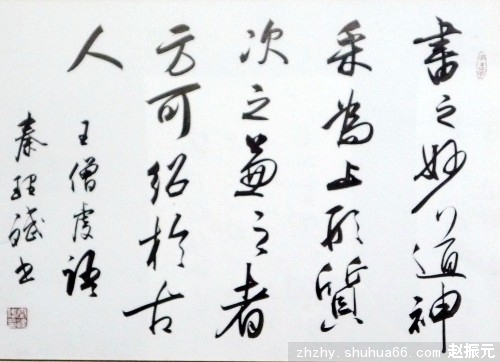 書之妙道神
采為上形質
次之兼之者
方可紹於古
人
王僧虔語
秦理书
zhzhy.shuhua66.com 赵振元